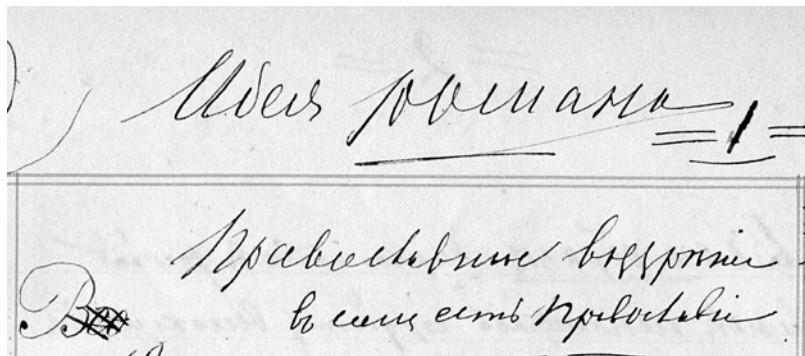 Идея романа
= 1 =
Православное воззрѣніе
В
въ чемъ есть Православіе